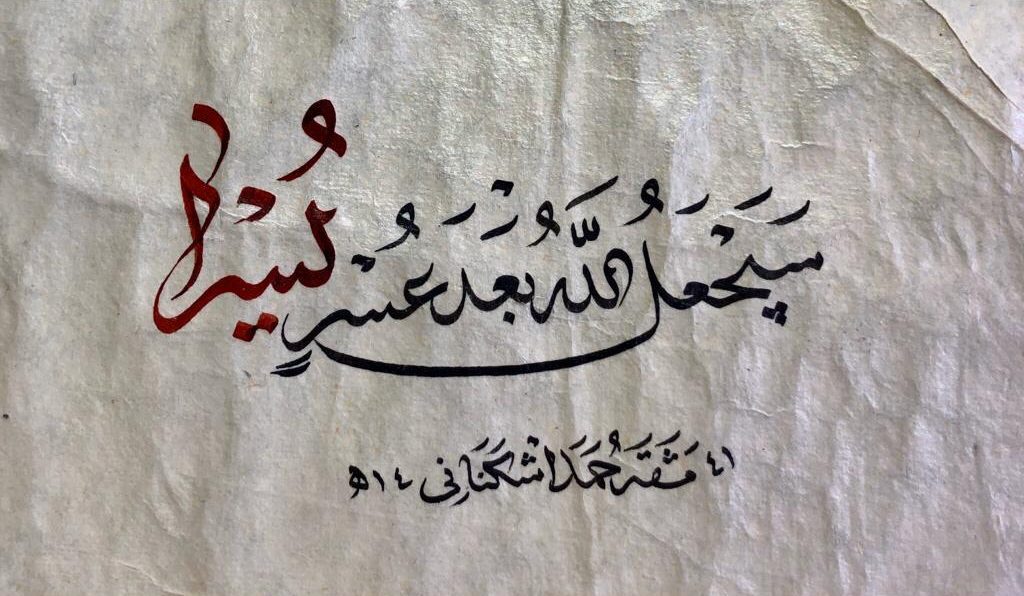 سَيَجْعَلُ اللَّهُ بَعْدَ عُسْرٍ يُسْرًا
٤١ مَشَقَهُ حُمَد اشْكَنَانِي ١٤هـ